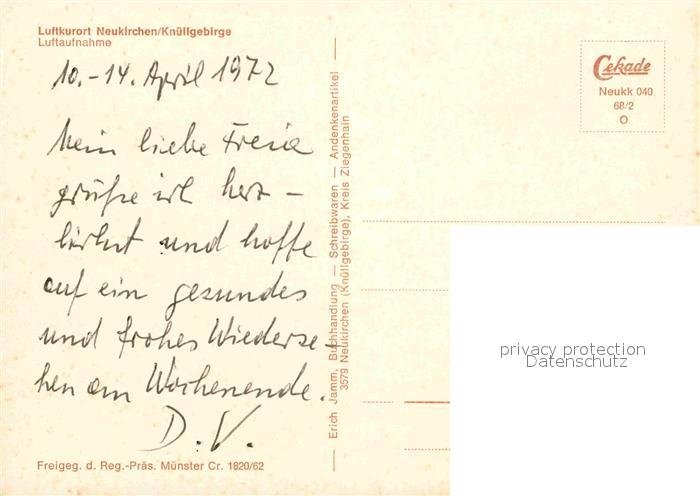 Luftkurort Neukirchen/Knüllgebirge
Luftaufnahme
10.-14. April 1972
Mein liebe
grüße ich herz-
lichst und hoffe
auf ein gesundes
und frohes Wiederse-
hen am Wochenende.
D.V.
Freigeg. d. Reg.-Präs. Münster Cr. 1820/62
Erich Jamm, Buchhandlung — Schreibwaren — Andenkenartikel
3579 Neukirchen (Knüllgebirge), Kreis Ziegenhain
Cekade
Neukk 040
68/2
privacy protection
Datenschutz